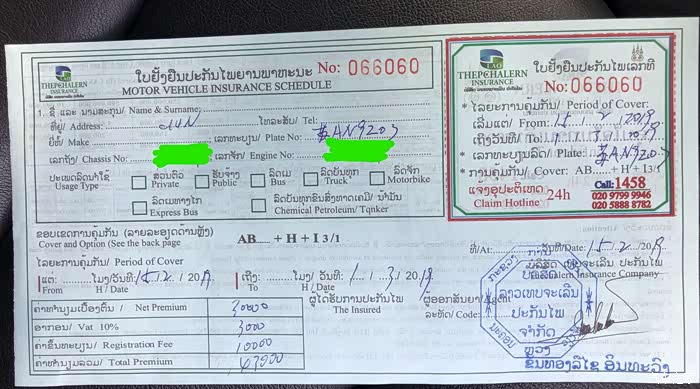 LAO
THEPCHALERN
INSURANCE
ໃບຢັ້ງຢືນປະກັນໄພຍານພາຫະນະ No: 066060
MOTOR VEHICLE INSURANCE SCHEDULE
1. ຊື່ ແລະ ນາມສະກຸນ/ Name & Surname:
ທີ່ຢູ່/ Address: ໂທລະສັບ/ Tel:
ຍີ່ຫໍ້/ Make ເລກທະບຽນ/ Plate No: AN9203
ເລກຖັງ/ Chassis No: ເລກຈັກ/ Engine No:
ປະເພດລົດນຳໃຊ້ ສ່ວນຕົວ ຮັບຈ້າງ ລົດເມ ລົດບັນທຸກ ລົດຈັກ
Usage Type Private Public Bus Truck Motorbike
ລົດເມທາງໄກ ລົດບັນທຸກຂົນສົ່ງທາດເຄມີ/ ນ້ຳມັນ
Express Bus Chemical Petroleum/ Tqnker
ຂອບເຂດການຄຸ້ມກັນ (ລາຍລະອຽດດ້ານຫຼັງ)
Cover and Option (See the back page AB...... + H + I 3/1
ໄລຍະການຄຸ້ມກັນ/ Period of Cover
ແຕ່: ໂມງ/ວັນທີ: 15/2/2019 ເຖິງ: ໂມງ/ ວັນທີ: 1/3/2019
From H / Date To H / Date
ຄ່າທຳນຽມເບື້ອງຕົ້ນ / Net Premium 30000
ອາກອນ/ Vat 10% 3000
ຄ່າຂຶ້ນທະບຽນ/ Registration Fee 10000
ຄ່າທຳນຽມລວມ/ Total Premium 43000
ຜູ້ໄດ້ຮັບການປະກັນໄພ
The Insured
ຜູ້ອອກສັນຍາ/
ລະຫັດ/ Code:
LAO
THEPCHALERN
INSURANCE
ໃບຢັ້ງຢືນປະກັນໄພເລກທີ
No: 066060
* ໄລຍະການຄຸ້ມກັນ/ Period of Cover:
ເລີ່ມແຕ່/ From: 15 2 2019
ເຖິງວັນທີ/ To: 1 3 2019
* ເລກທະບຽນລົດ/ Plate: AN9203
* ການຄຸ້ມກັນ/ Cover: AB......+ H + I3/1
ແຈ້ງອຸປະຕິເຫດ 24h Call: 1458
Claim Hotline 020 9799 9946
020 5888 8782
ທີ່/At: ວັນທີ/Date: 15 2 2019
ບໍລິສັດ ປະກັນໄພ
Insurance Company
ລາວເທບຈະເລີນ
ປະກັນໄພ
ຈຳກັດ
ຂັນທອງລືໄຊ ອິນທະວົງ